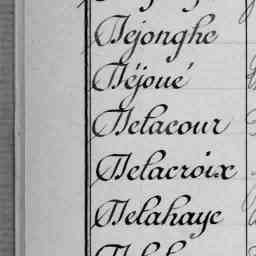 Dejonghe
Déjoué
Delacour
Delacroix
Delahaye